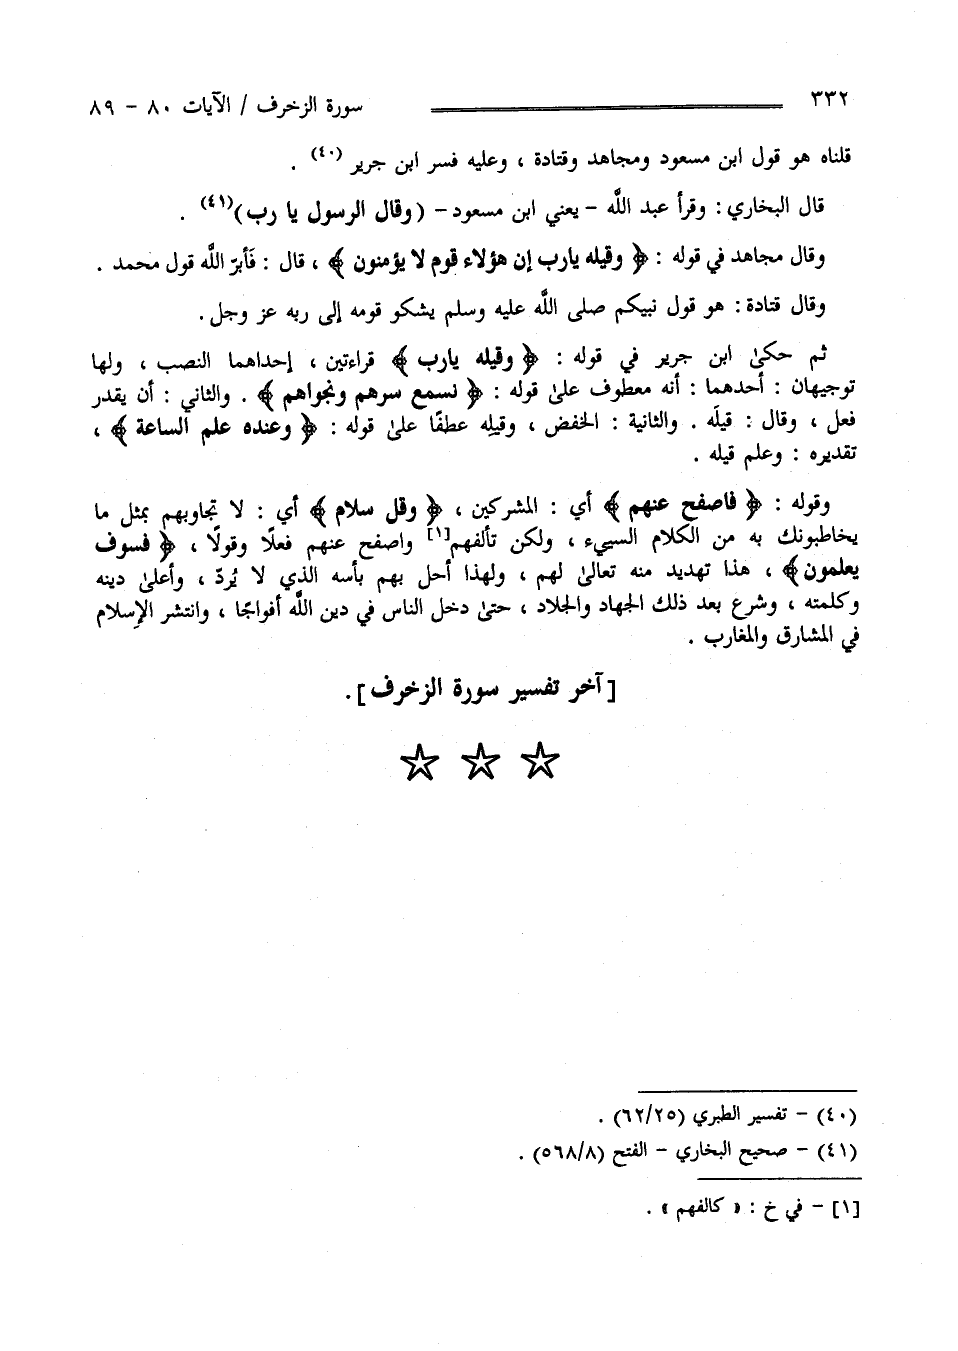 ٣٣٢ سورة الزخرف / الآيات ٨٠ - ٨٩
قلناه هو قول ابن مسعود ومجاهد وقتادة ، وعليه فسر ابن جرير (٤٠) .
قال البخاري : وقرأ عبد اللَّه - يعني ابن مسعود - ( وقال الرسول يا رب )(٤١) .
وقال مجاهد في قوله : ﴿ وقيله يارب إن هؤلاء قوم لا يؤمنون ﴾ ، قال : فَأبرّ اللَّه قول محمد .
وقال قتادة : هو قول نبيكم صلى اللَّه عليه وسلم يشكو قومه إلى ربه عز وجل .
ثم حكىٰ ابن جرير في قوله : ﴿ وقيله يارب ﴾ قراءتين ، إحداهما النصب ، ولها
توجيهان : أحدهما : أنه معطوف علىٰ قوله : ﴿ نسمع سرهم ونجواهم ﴾ . والثاني : أن يقدر
فعل ، وقال : قيلَه . والثانية : الخفض ، وقيلِه عطفًا علىٰ قوله : ﴿ وعنده علم الساعة ﴾ ،
تقديره : وعلم قيله .
وقوله : ﴿ فاصفح عنهم ﴾ أي : المشركين ، ﴿ وقل سلام ﴾ أي : لا تجاوبهم بمثل ما
يخاطبونك به من الكلام السييء ، ولكن تألفهم[١] واصفح عنهم فعلًا وقولًا ، ﴿ فسوف
يعلمون ﴾ ، هذا تهديد منه تعالىٰ لهم ، ولهذا أحل بهم بأسه الذي لا يُردّ ، وأعلىٰ دينه
وكلمته ، وشرع بعد ذلك الجهاد والجلاد ، حتىٰ دخل الناس في دين اللَّه أفواجًا ، وانتشر الإسلام
في المشارق والمغارب .
[ آخر تفسير سورة الزخرف ] .
(٤٠) - تفسير الطبري (٦٢/٢٥) .
(٤١) - صحيح البخاري - الفتح (٥٦٨/٨) .
[١] - في خ : « كالفهم » .